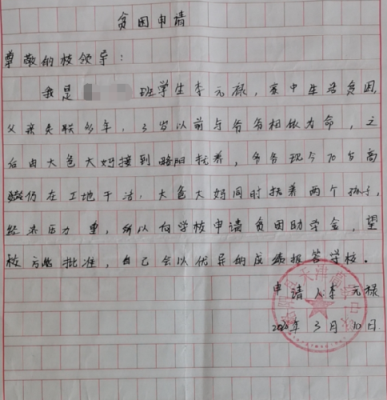 贫困申请
尊敬的校领导:
我是 班学生李元禄,家中生活贫困,
父亲失联多年,3岁以前与爷爷相依为命,之
后由大爸大妈接到略阳抚养,爷爷现今70岁高
龄仍在工地干活,大爸大妈同时抚养两个孩子,
经济压力重,所以向学校申请贫困助学金,望
校方能批准,自己会以优异的成绩报答学校。
申请人李元禄
年3月10日